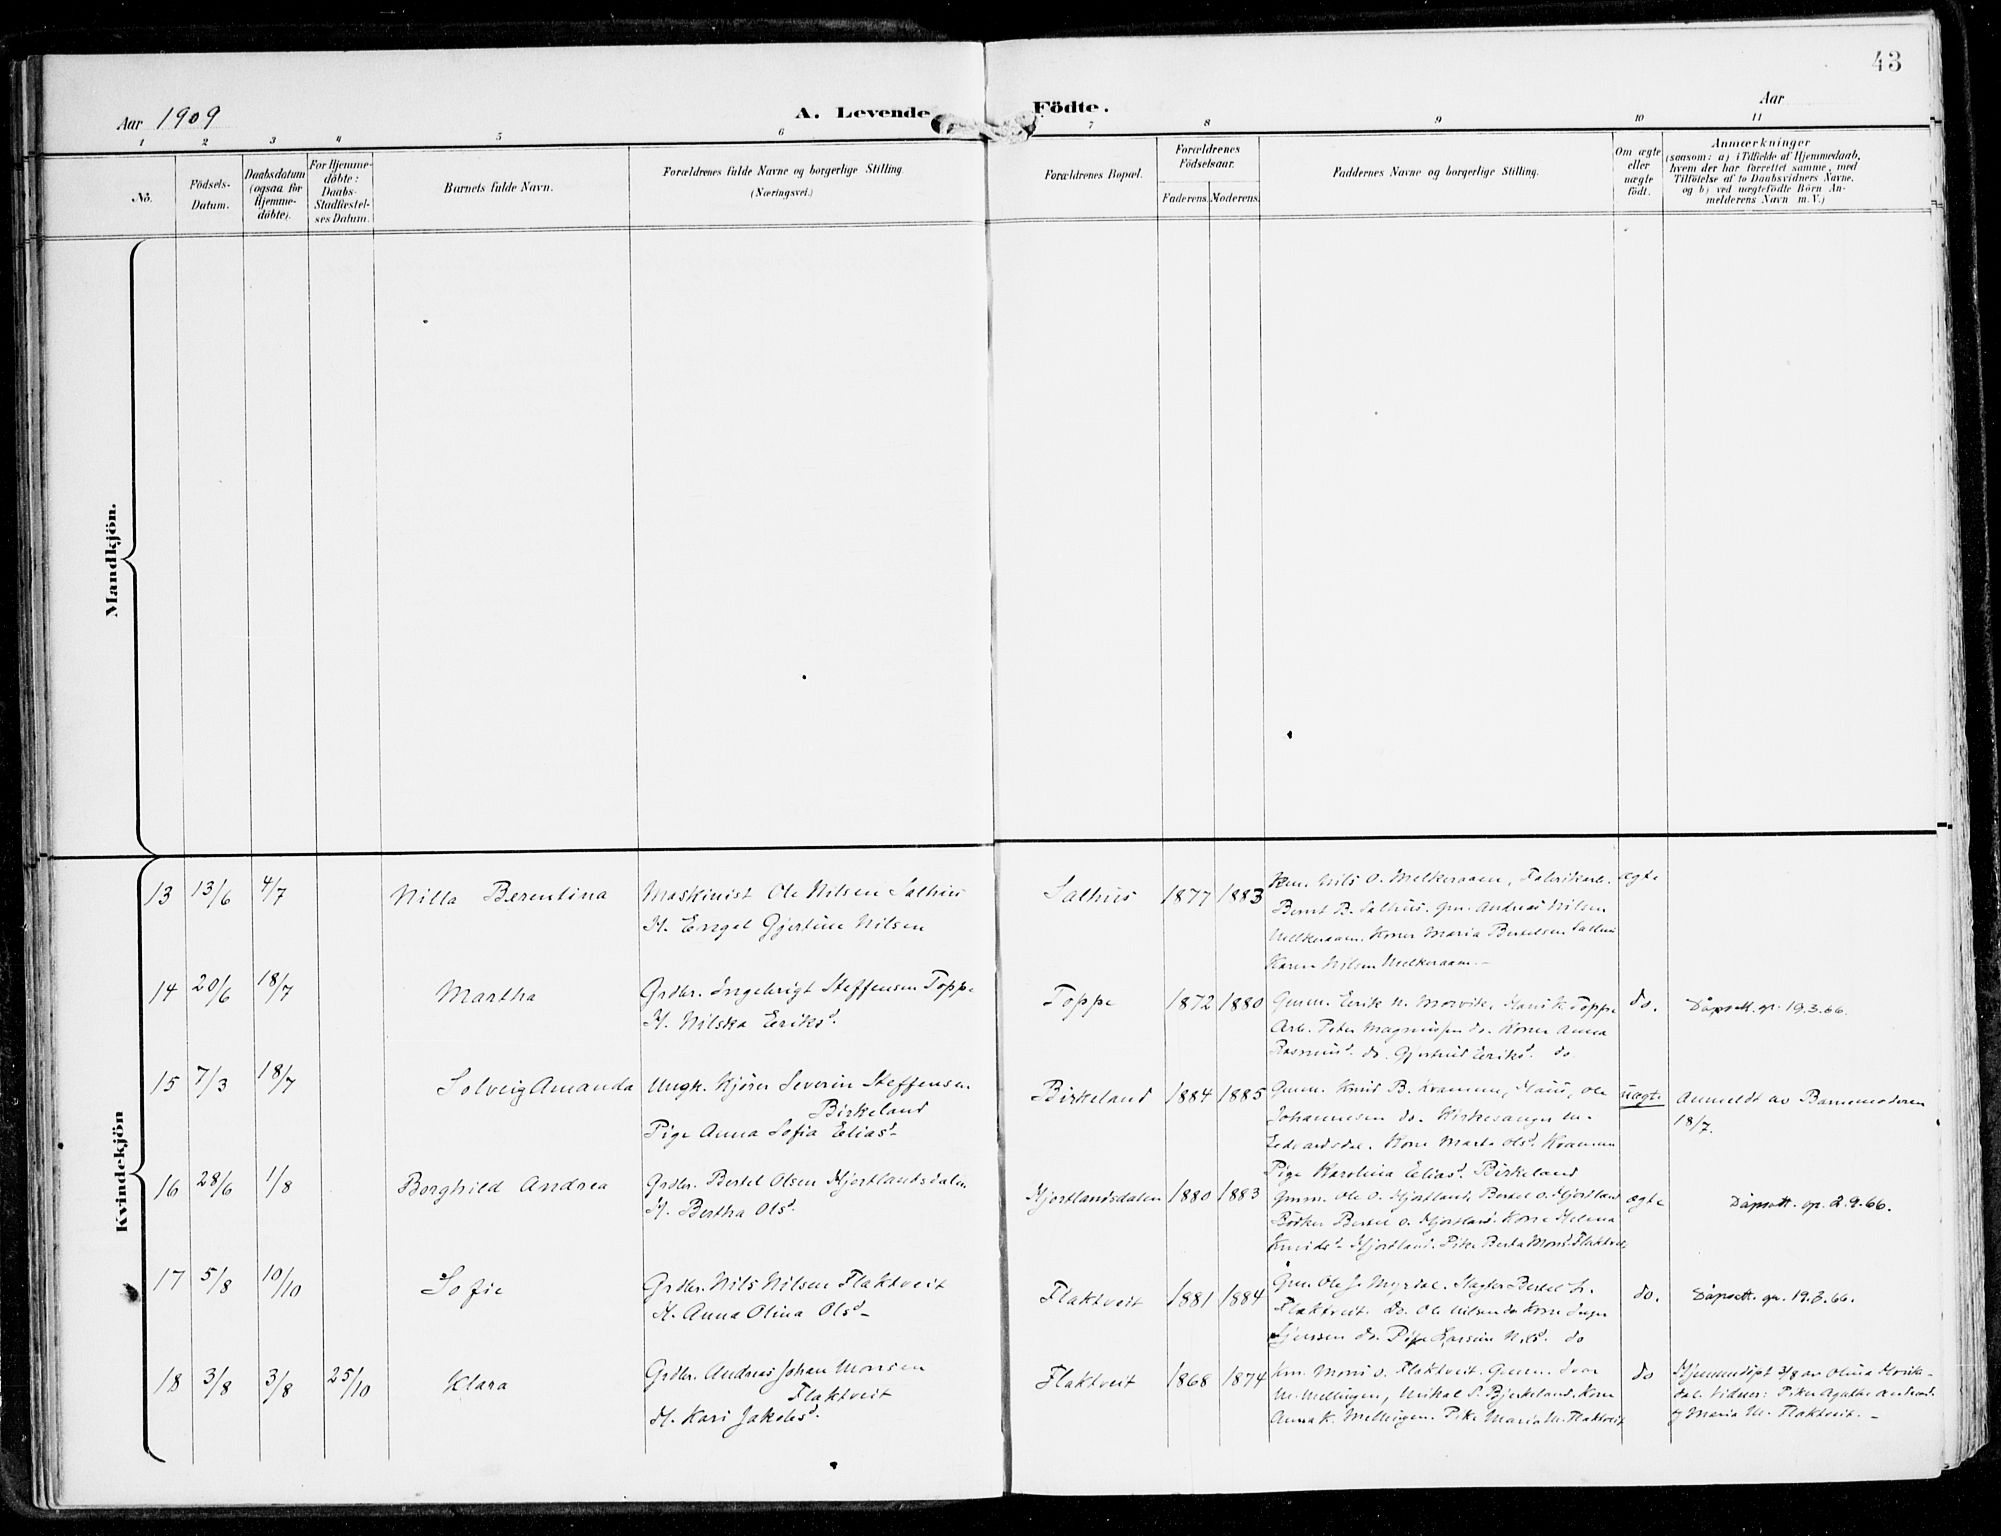 43
Aar 1909
A. Levende Födte.
Aar
1 2 3 4 5 6 7 8 9 10 11
No.
Födsels-Datum.
Daabsdatum (ogsaa for Hjemme-döbte).
For Hjemme-döbte: Daabs-Stadfæstel-ses Datum.
Barnets fulde Navn.
Forældrenes fulde Navne og borgerlige Stilling (Næringsvei.)
Forældrenes Bopæl.
Forældrenes Födselsaar.
Faderens. Moderens.
Faddernes Navne og borgerlige Stilling.
Om ægte eller uægte födt.
Anmærkninger
(saasom: a) i Tilfælde af Hjemmedaab,
hvem der har forrettet samme, med
Tilföielse af to Daabsvidners Navne,
og b) ved uægtefödte Börn An-
melderens Navn m. V.)
Mandkjön.
Kvindekjön
13 13/6 4/7 Nilla Berentina
Maskinist Ole Nilsen Salhus
H. Engel Gjertine Nilsen
Salhus 1877 1883
Nils O. Melkeraaen, Fabrikarb.
Bernt B. Salhus. Gm. Andreas Nilsen
Melkeraaen. Koner Maria Bertelsen Salhus
Karen Nilsen Melkeraaen.-
ægte
14 20/6 18/7 Martha
Grdbr. Ingebrigt Steffensen Toppe
H. Nilska Eriksd.
Toppe 1872 1880
Gmm. Erik N. Morvik, Toppe
Arb. Peter Magnussen do. Koner Anna
Rasmusd. do. Gjertrud Eriksd. do
do.
Dåpsatt. gr. 19.3.66.
15 7/3 18/7 Solveig Amanda
Ungk. Kjörer Severin Steffensen
Birkeland
Pige Anna Sofia Eliasd-
Birkeland 1884 1885
Gmm. Knud B. Kvamme, Ole
Johannesen do. Kirkesanger
Kone Marta Olsd. Kvamme
Pige Karolina Eliasd. Birkeland
uægte
Anmeldt av Barnemoderen
18/7.
16 28/6 1/8 Borghild Andrea
Grdbr. Bertel Olsen Hjortlandsdalen
H. Bertha Olsd.
Hjortlandsdalen 1880 1883
Gmm. Ole O. Hjortland, Bertel O. Hjortland
Bödker Bertel O. Hjortland. Kone Helena
Knudsd- Hjortland. Pike Berta Monsd. Flaktveit
ægte
Dåpsatt. gr. 2.9.66.
17 5/8 10/10 Sofie
Grdbr. Nils Nilsen Flaktveit
H. Anna Olina Olsd-
Flaktveit 1881 1884
Gmm. Ole J. Myrdal. Slagter Bertel
Flaktveit. do. Ole Nilsen do Kone Inger
do. Pige do
do.
Dåpsatt. gr. 19.3.66.
18 3/8 3/8 25/10 Klara
Grdbr. Andreas Johan Monsen
Flaktveit
H. Kari Jakobsd.
Flaktveit 1868 1874
Mons Flaktveit. Gmm. Ivar
M. Mellingen, Mikal S. Bjerkeland. Kone
Anna K. Mellingen. Pike Maria M. Flaktveit
do
Hjemmedöpt 3/8 av Olina
Vidner: Pike Agathe
og Maria M. Flaktveit.-